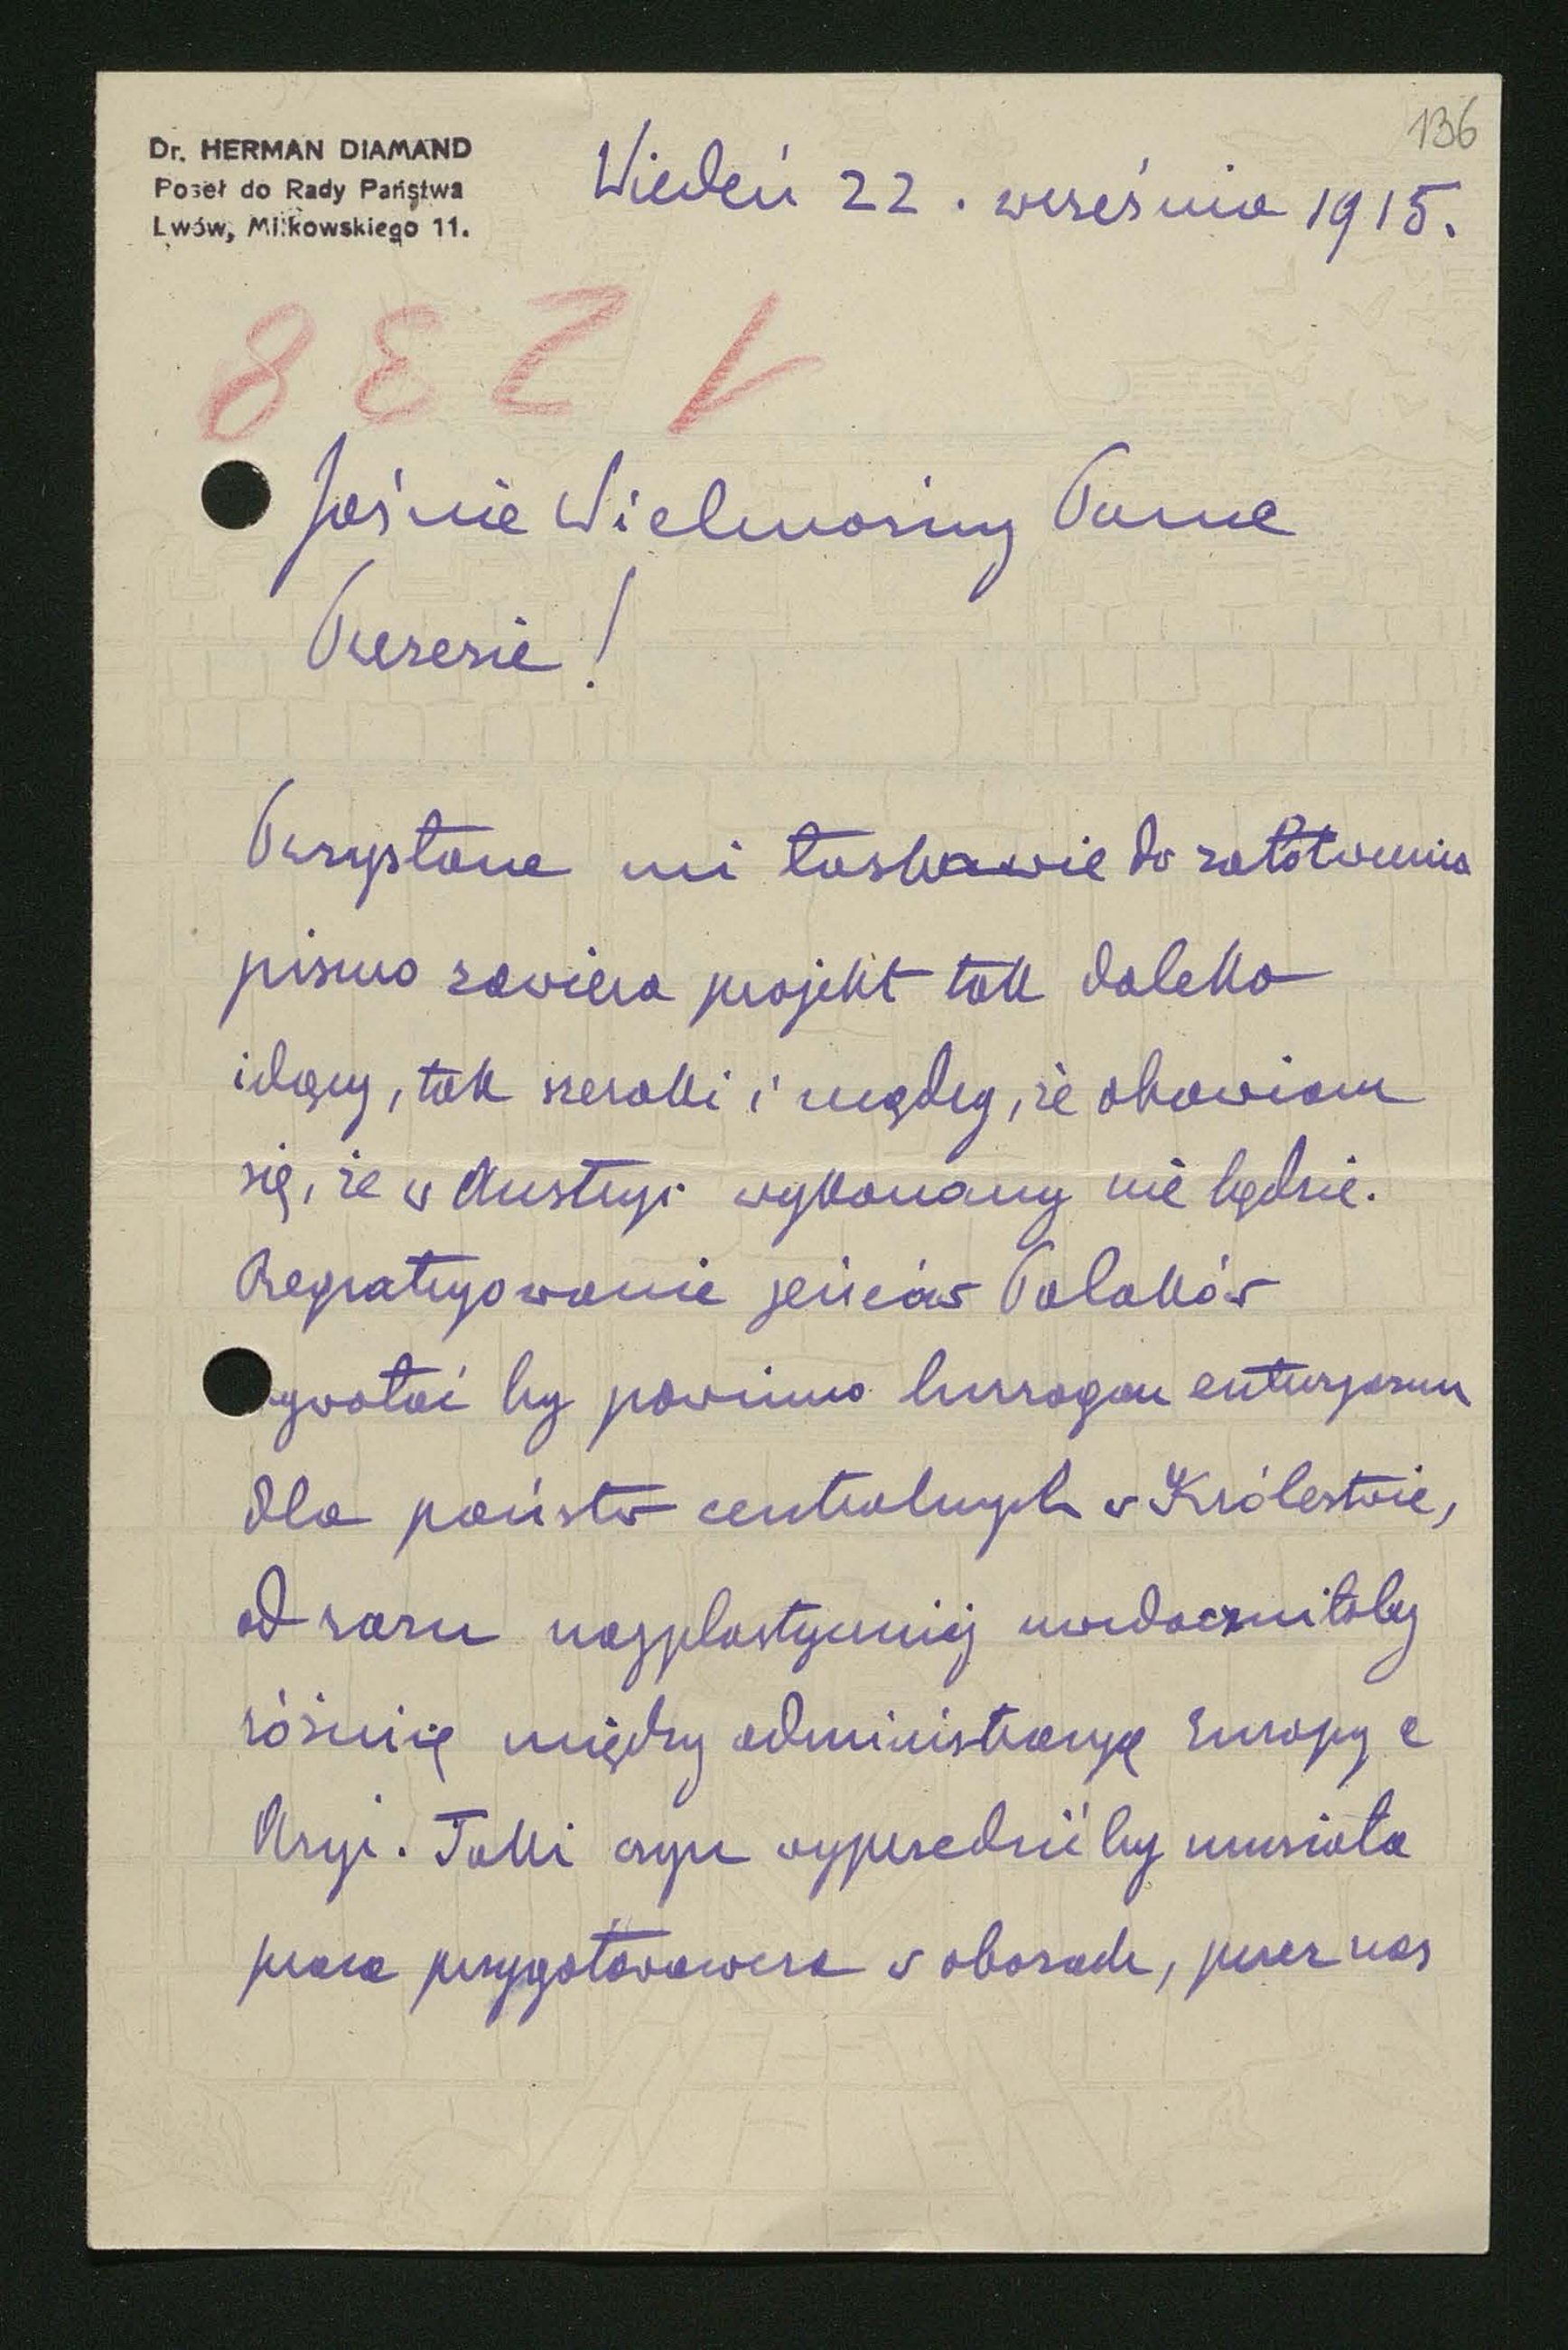 136
Dr. HERMAN DIAMAND
Poseł do Rady Państwa
Lwów, Miłkowskiego 11.
Wiedeń 22. września 1915.
1238
Jaśnie Wielmożny Panie
Prezesie!
Przysłane mi łaskawie do załatwienia
pismo zawiera projekt tak daleko
idący, tak szeroki i mądry, że obawiam
się, że w Austryi wykonany nie będzie.
Repatryowanie jeńców Polaków
wywołać by powinno huragan entuzyazmu
dla państw centralnych w Królestwie,
od razu najplastyczniej uwidoczniłoby
różnicę między administracyą Europy a
Azyi. Taki czyn wyprzedzić by musiała
praca przygotowawcza w obozach, przez nas